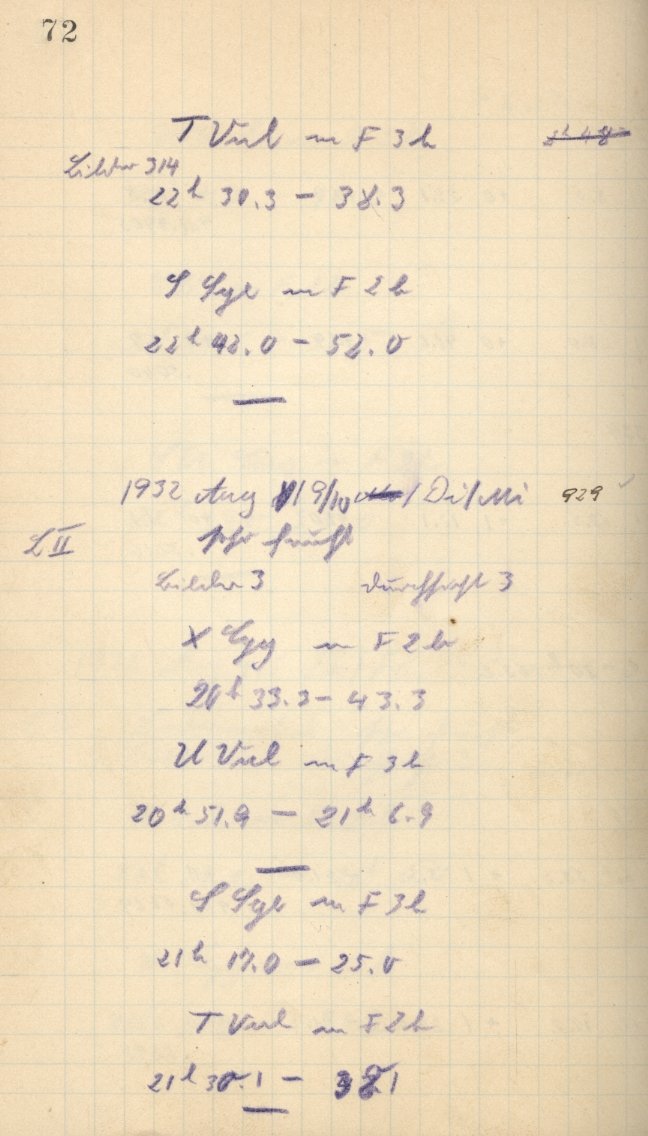 72
T Vul m F 3 h
Bilder 3/4
22h 30.3 – 38.3
S Sge m F 2 h
22h 42.0 – 52.0
1932 Aug 9/10 Di/Mi 929
L II sehr feucht
Bilder 3 Durchsicht 3
X Cyg m F 2 h
20h 33.3 – 43.3
U Vul m F 3 h
20h 51.9 – 21h 6.9
S Sge m F 3 h
21h 17.0 – 25.0
T Vul m F 2 h
21h 30.1 –